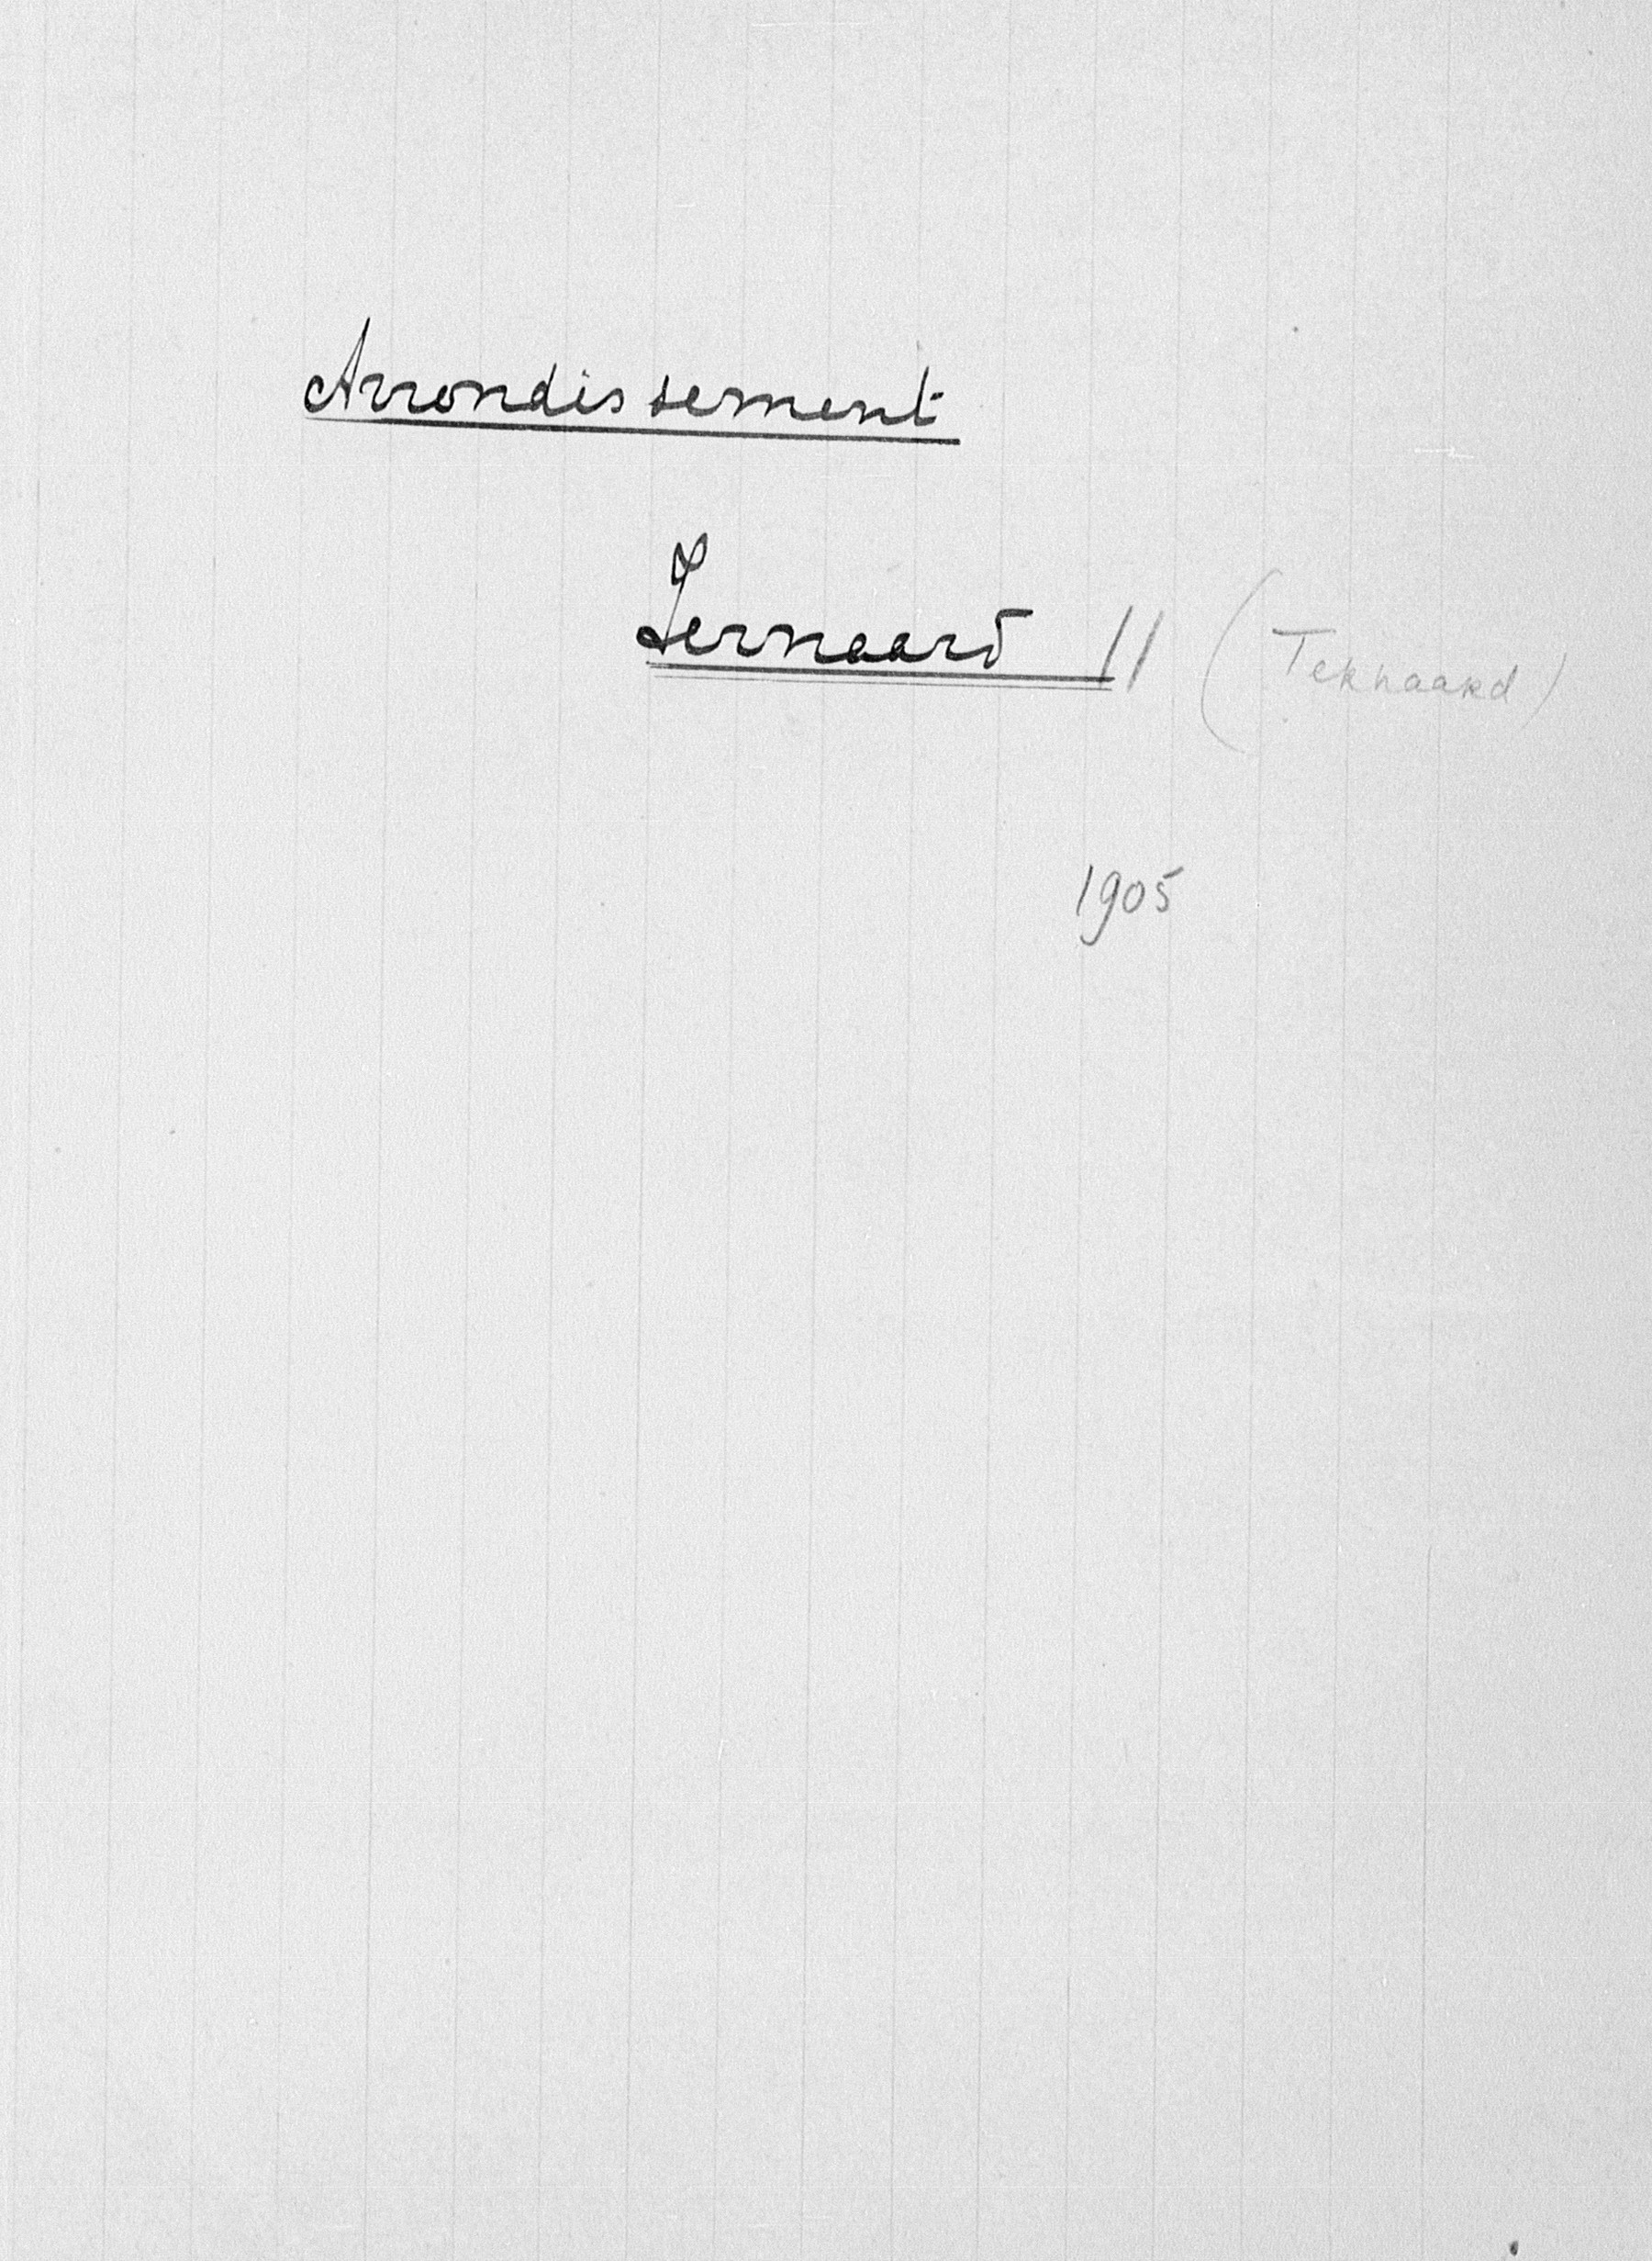 Arrondissement
Ternaard II (Ternaard)
1905